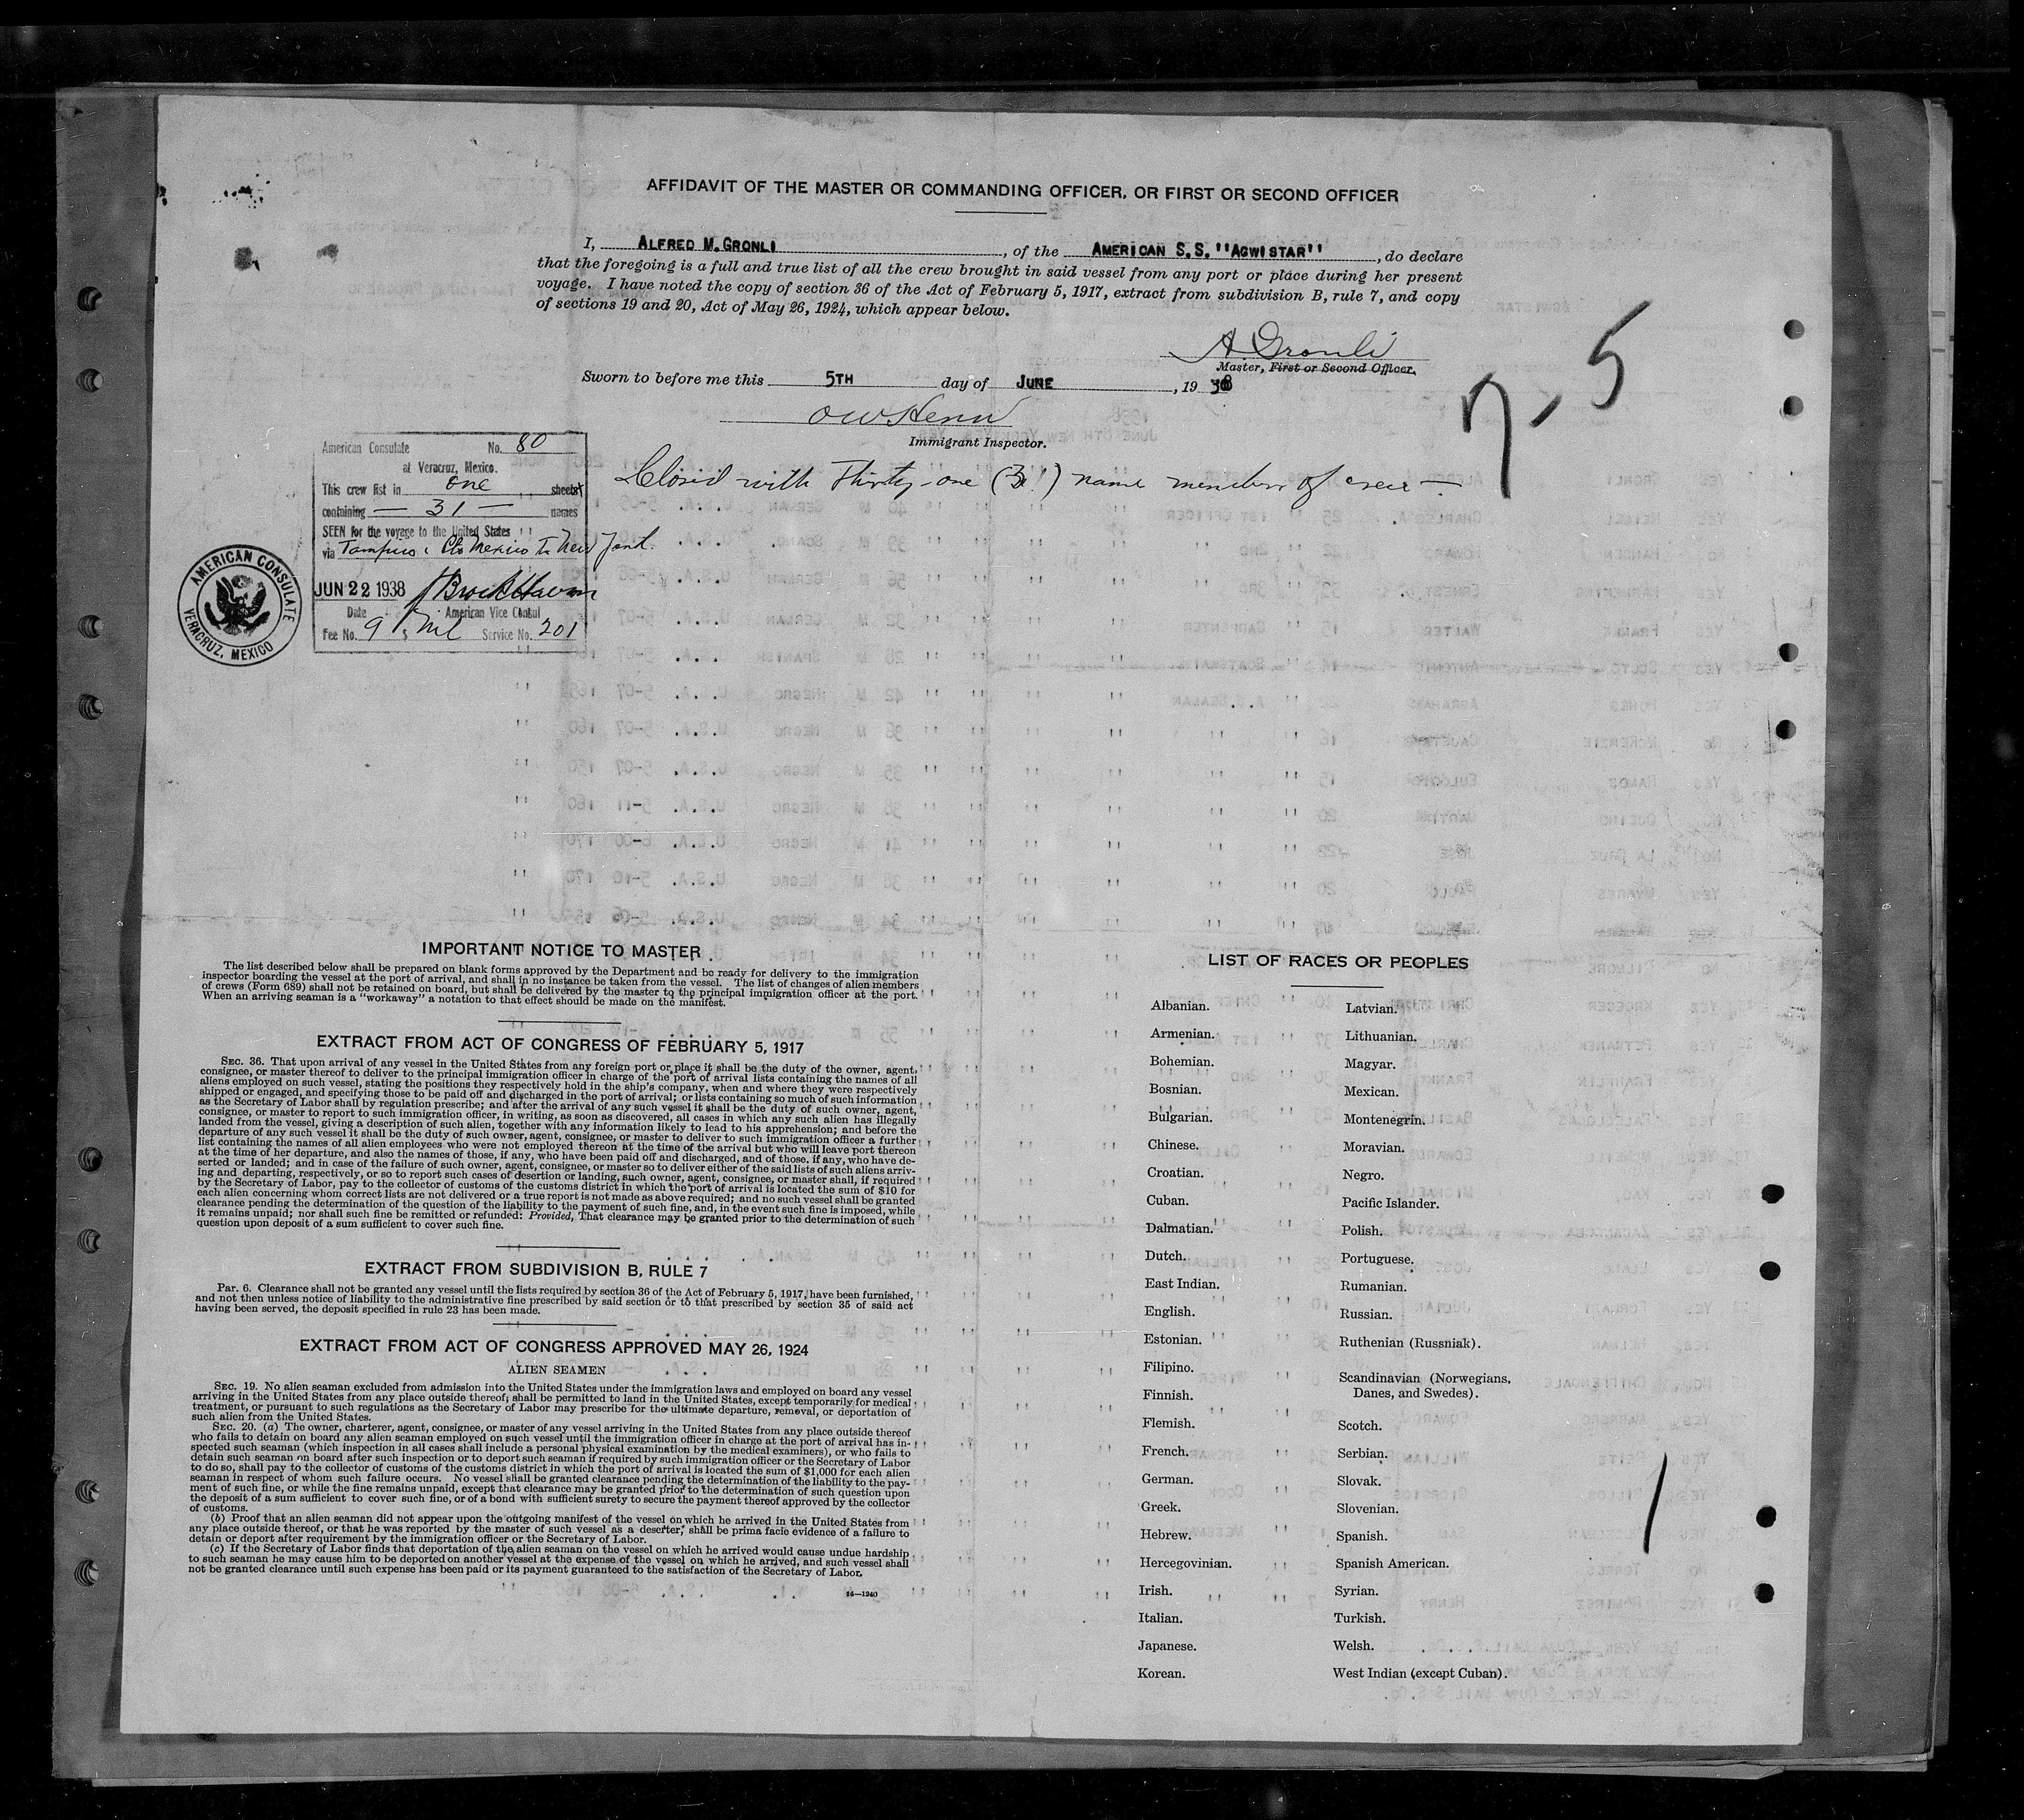 AFFIDAVIT OF THE MASTER OR COMMANDING OFFICER, OR FIRST OR SECOND OFFICER
I, ALFRED M. GRONLI, of the AMERICAN S.S. "AGWISTAR", do declare
that the foregoing is a full and true list of all the crew brought in said vessel from any port or place during her present
voyage. I have noted the copy of section 36 of the Act of February 5, 1917, extract from subdivision B, rule 7, and copy
of sections 19 and 20, Act of May 26, 1924, which appear below.
A. Gronli
Master, First or Second Officer.
Sworn to before me this 5TH day of JUNE, 1938
Immigrant Inspector.
7-5
American Consulate No. 80
at Veracruz, Mexico.
This crew list in one sheets
containing — 31 — names
SEEN for the voyage to the United States
via Tampico, Mexico to New York.
JUN 22 1938
Date American Vice Consul
Fee No. 9 $ Nil Service No. 201
AMERICAN CONSULATE
VERACRUZ, MEXICO
Closed with Thirty-one (31) name members of crew —
IMPORTANT NOTICE TO MASTER
The list described below shall be prepared on blank forms approved by the Department and be ready for delivery to the immigration
inspector boarding the vessel at the port of arrival, and shall in no instance be taken from the vessel. The list of changes of alien members
of crews (Form 689) shall not be retained on board, but shall be delivered by the master to the principal immigration officer at the port.
When an arriving seaman is a "workaway" a notation to that effect should be made on the manifest.
EXTRACT FROM ACT OF CONGRESS OF FEBRUARY 5, 1917
SEC. 36. That upon arrival of any vessel in the United States from any foreign port or place it shall be the duty of the owner, agent,
consignee, or master thereof to deliver to the principal immigration officer in charge of the port of arrival lists containing the names of all
aliens employed on such vessel, stating the positions they respectively hold in the ship's company, when and where they were respectively
shipped or engaged, and specifying those to be paid off and discharged in the port of arrival; or lists containing so much of such information
as the Secretary of Labor shall by regulation prescribe; and after the arrival of any such vessel it shall be the duty of such owner, agent,
consignee, or master to report to such immigration officer, in writing, as soon as discovered, all cases in which any such alien has illegally
landed from the vessel, giving a description of such alien, together with any information likely to lead to his apprehension; and before the
departure of any such vessel it shall be the duty of such owner, agent, consignee, or master to deliver to such immigration officer a further
list containing the names of all alien employees who were not employed thereon at the time of the arrival but who will leave port thereon
at the time of her departure, and also the names of those, if any, who have been paid off and discharged, and of those, if any, who have de-
serted or landed; and in case of the failure of such owner, agent, consignee, or master so to deliver either of the said lists of such aliens arriv-
ing and departing, respectively, or so to report such cases of desertion or landing, such owner, agent, consignee, or master shall, if required
by the Secretary of Labor, pay to the collector of customs of the customs district in which the port of arrival is located the sum of $10 for
each alien concerning whom correct lists are not delivered or a true report is not made as above required; and no such vessel shall be granted
clearance pending the determination of the question of the liability to the payment of such fine, and, in the event such fine is imposed, while
it remains unpaid; nor shall such fine be remitted or refunded: Provided, That clearance may be granted prior to the determination of such
question upon deposit of a sum sufficient to cover such fine.
EXTRACT FROM SUBDIVISION B, RULE 7
Par. 6. Clearance shall not be granted any vessel until the lists required by section 36 of the Act of February 5, 1917, have been furnished,
and not then unless notice of liability to the administrative fine prescribed by said section or to that prescribed by section 35 of said act
having been served, the deposit specified in rule 23 has been made.
EXTRACT FROM ACT OF CONGRESS APPROVED MAY 26, 1924
ALIEN SEAMEN
SEC. 19. No alien seaman excluded from admission into the United States under the immigration laws and employed on board any vessel
arriving in the United States from any place outside thereof, shall be permitted to land in the United States, except temporarily for medical
treatment, or pursuant to such regulations as the Secretary of Labor may prescribe for the ultimate departure, removal, or deportation of
such alien from the United States.
SEC. 20. (a) The owner, charterer, agent, consignee, or master of any vessel arriving in the United States from any place outside thereof
who fails to detain on board any alien seaman employed on such vessel until the immigration officer in charge at the port of arrival has in-
spected such seaman (which inspection in all cases shall include a personal physical examination by the medical examiners), or who fails to
detain such seaman on board after such inspection or to deport such seaman if required by such immigration officer or the Secretary of Labor
to do so, shall pay to the collector of customs of the customs district in which the port of arrival is located the sum of $1,000 for each alien
seaman in respect of whom such failure occurs. No vessel shall be granted clearance pending the determination of the liability to the pay-
ment of such fine, or while the fine remains unpaid, except that clearance may be granted prior to the determination of such question upon
the deposit of a sum sufficient to cover such fine, or of a bond with sufficient surety to secure the payment thereof approved by the collector
of customs.
(b) Proof that an alien seaman did not appear upon the outgoing manifest of the vessel on which he arrived in the United States from
any place outside thereof, or that he was reported by the master of such vessel as a deserter, shall be prima facie evidence of a failure to
detain or deport after requirement by the immigration officer or the Secretary of Labor.
(c) If the Secretary of Labor finds that deportation of the alien seaman on the vessel on which he arrived would cause undue hardship
to such seaman he may cause him to be deported on another vessel at the expense of the vessel on which he arrived, and such vessel shall
not be granted clearance until such expense has been paid or its payment guaranteed to the satisfaction of the Secretary of Labor.
14—1240
LIST OF RACES OR PEOPLES
Albanian.
Armenian.
Bohemian.
Bosnian.
Bulgarian.
Chinese.
Croatian.
Cuban.
Dalmatian.
Dutch.
East Indian.
English.
Estonian.
Filipino.
Finnish.
Flemish.
French.
German.
Greek.
Hebrew.
Hercegovinian.
Irish.
Italian.
Japanese.
Korean.
Latvian.
Lithuanian.
Magyar.
Mexican.
Montenegrin.
Moravian.
Negro.
Pacific Islander.
Polish.
Portuguese.
Rumanian.
Russian.
Ruthenian (Russniak).
Scandinavian (Norwegians,
Danes, and Swedes).
Scotch.
Serbian.
Slovak.
Slovenian.
Spanish.
Spanish American.
Syrian.
Turkish.
Welsh.
West Indian (except Cuban).